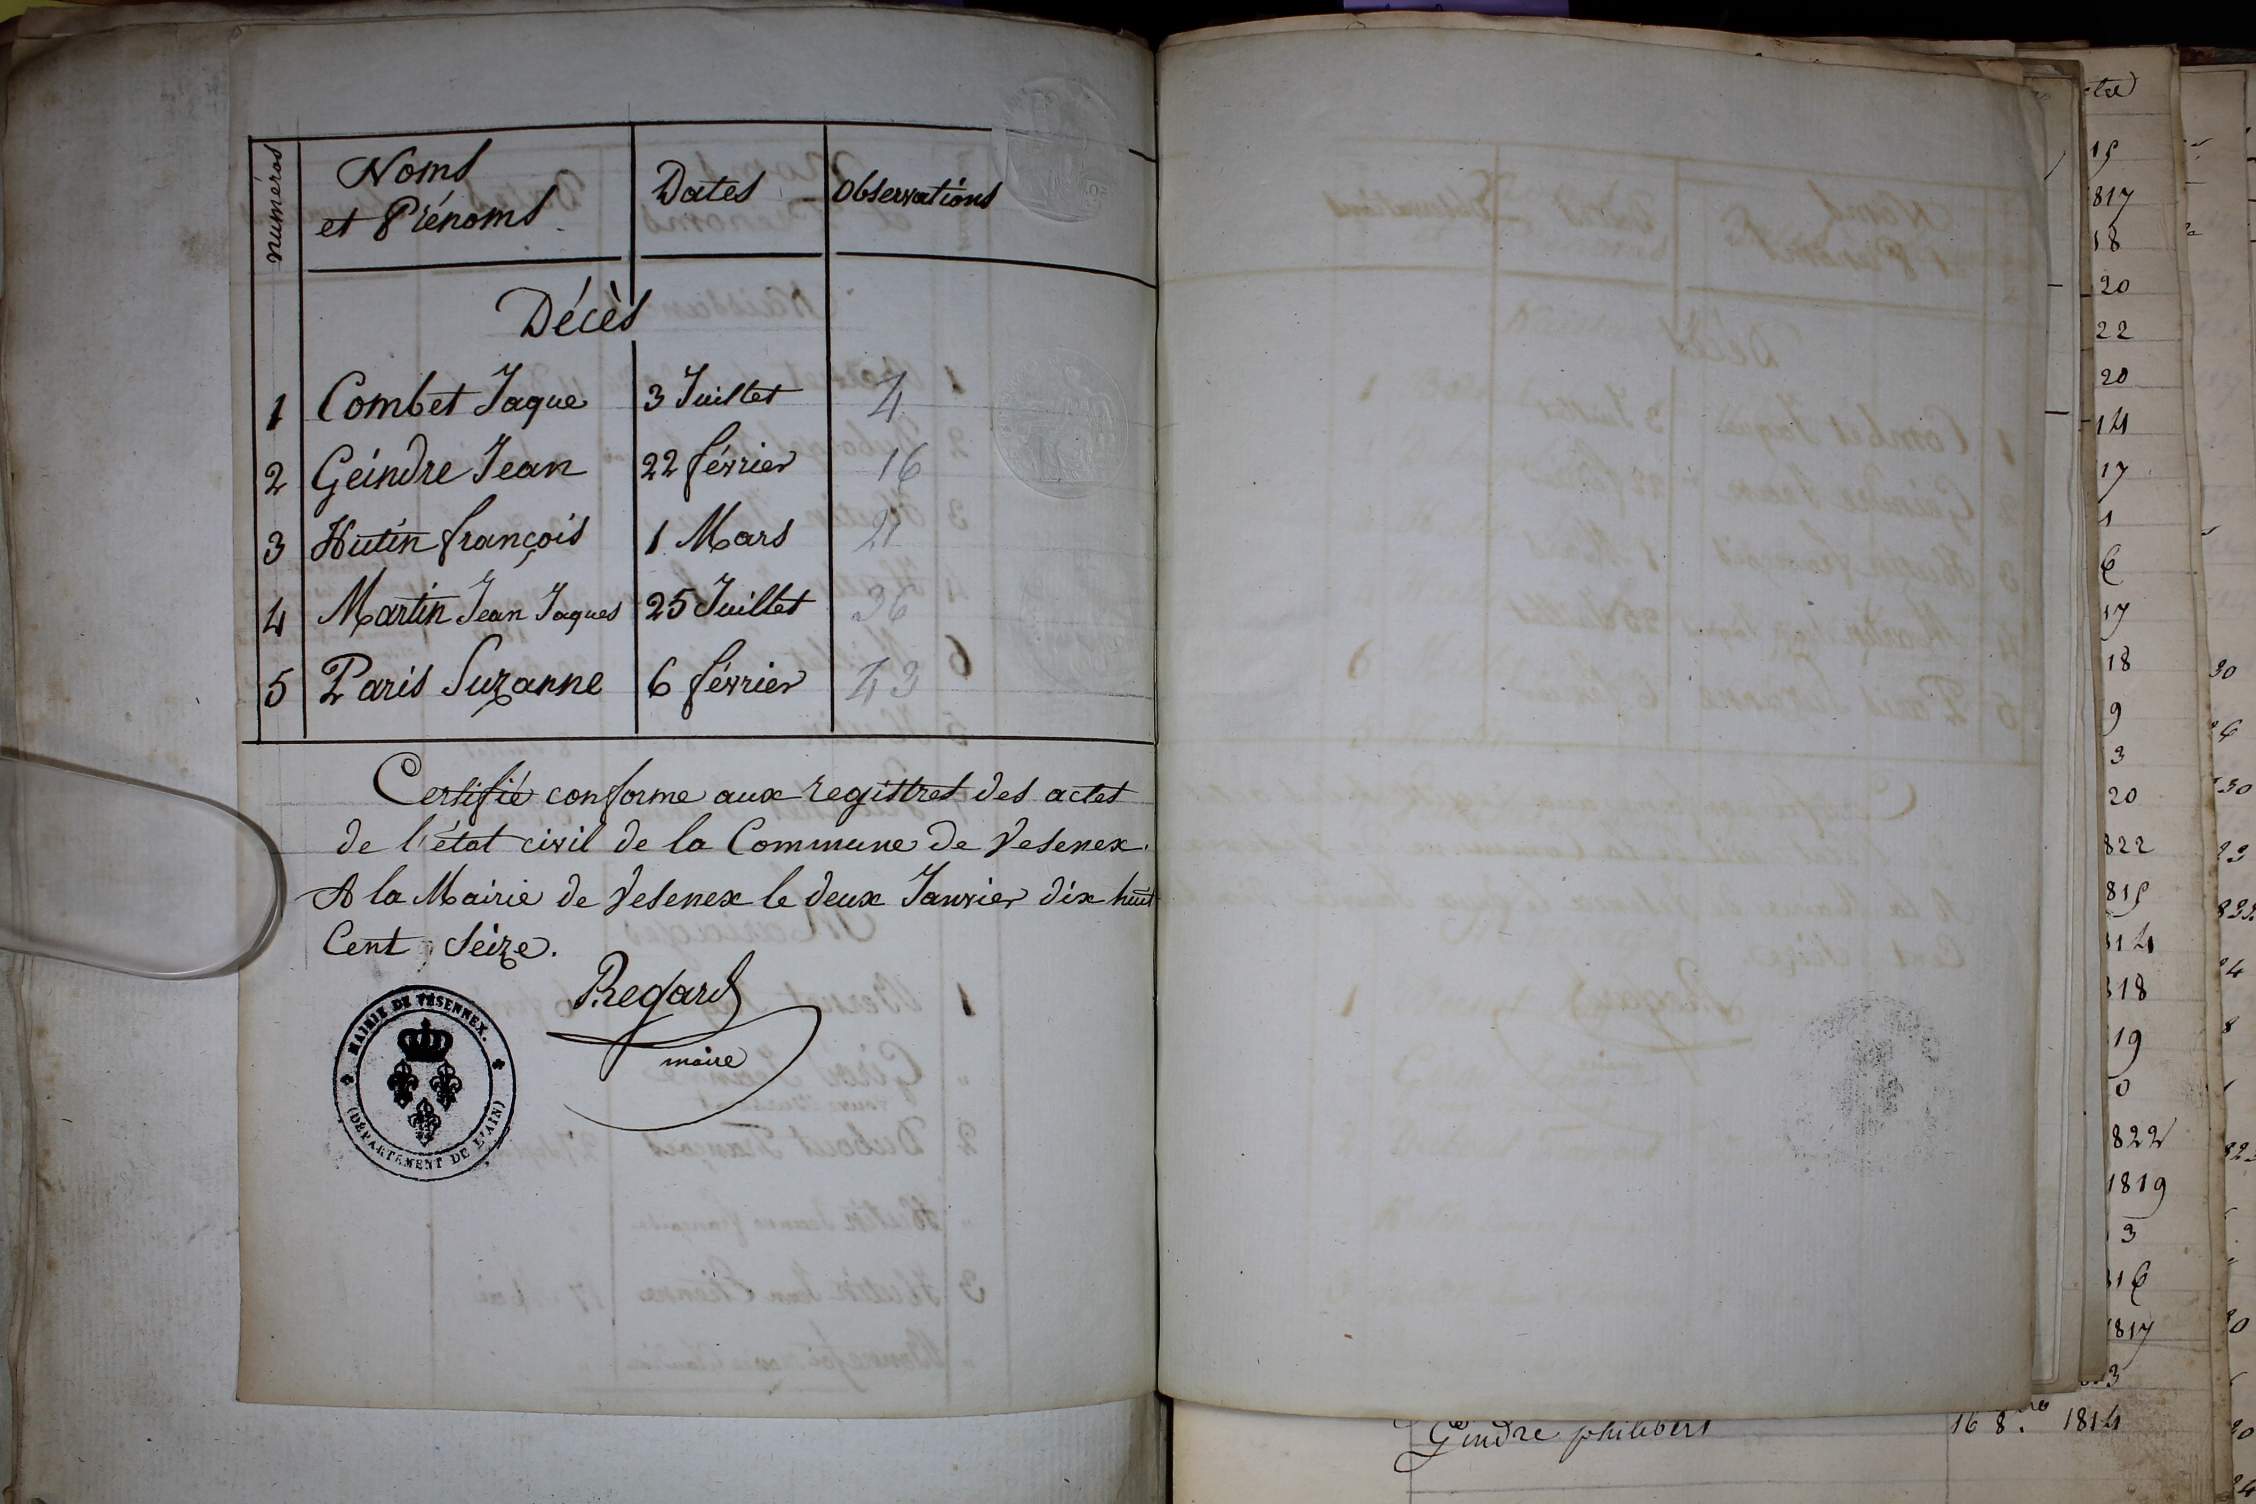 numéros
Noms
et Prénoms
Dates
Observations
Décès
1 Combet Jaque 3 Juillet 4
2 Geindre Jean 22 février 16
3 Hutin françois 1 Mars 21
4 Martin Jean Jaques 25 Juillet 36
5 Paris Suzanne 6 février 43
Certifié conforme aux registres des actes
de l'état civil de la Commune de Vesenex.
A la Mairie de Vesenex le deux Janvier dix huit
Cent Seize.
Regard
maire
MAIRIE DE VESENNEX.
(DÉPARTEMENT DE L'AIN)
817
18
20
22
20
14
17
18
9
3
20
822
14
818
19
0
822
1819
3
16
1817
3
Gindre philibert 16 8.bre 1814